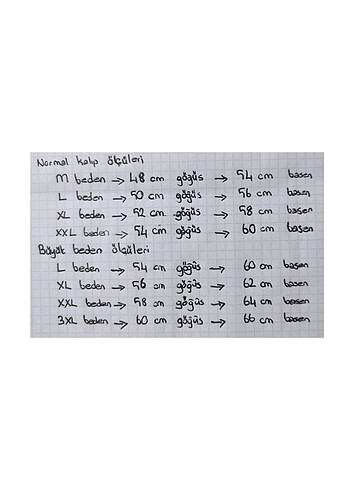 Normal kalıp ölçüleri
M beden → 48 cm göğüs → 54 cm basen
L beden → 50 cm göğüs → 56 cm basen
XL beden → 52 cm göğüs → 58 cm basen
XXL beden → 54 cm göğüs → 60 cm basen
Büyük beden ölçüleri
L beden → 54 cm göğüs → 60 cm basen
XL beden → 56 cm göğüs → 62 cm basen
XXL beden → 58 cm göğüs → 64 cm basen
3XL beden → 60 cm göğüs → 66 cm basen